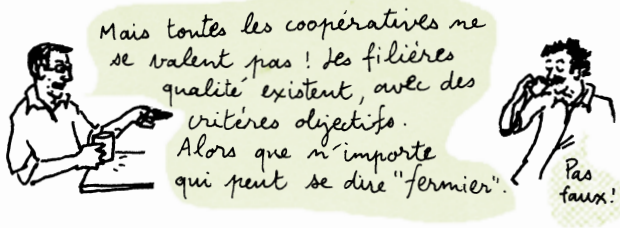 Mais toutes les coopératives ne
se valent pas ! Les filières
qualité existent, avec des
critères objectifs.
Alors que n'importe
qui peut se dire "fermier".
Pas
faux !